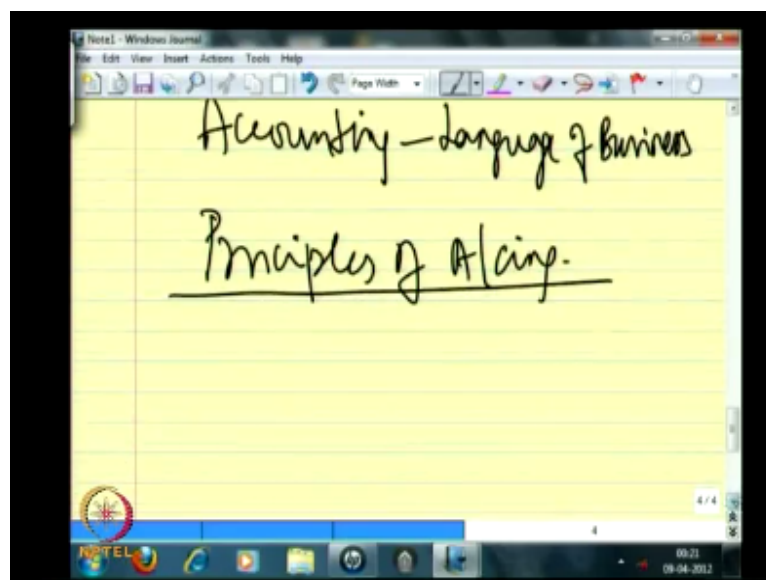 Note1 - Windows Journal
File Edit View Insert Actions Tools Help
Page Width
Accounting - Language of Business
Principles of A/cing.
4/4
4
NPTEL
00:21
09-04-2012